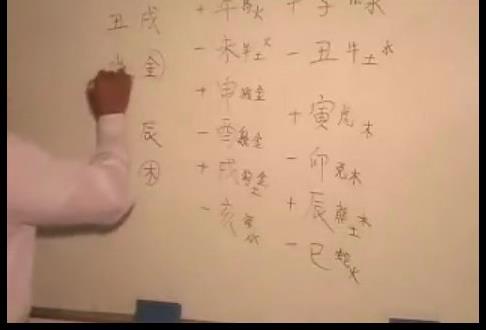 丑 戌
金
辰
木
+ 午 馬火
- 未 羊土火
+ 申 猴金
- 酉 雞金
+ 戌 狗土金
- 亥 豬水
+ 子 水
- 丑 牛土水
+ 寅 虎木
- 卯 兔木
+ 辰 龍土木
- 巳 蛇火